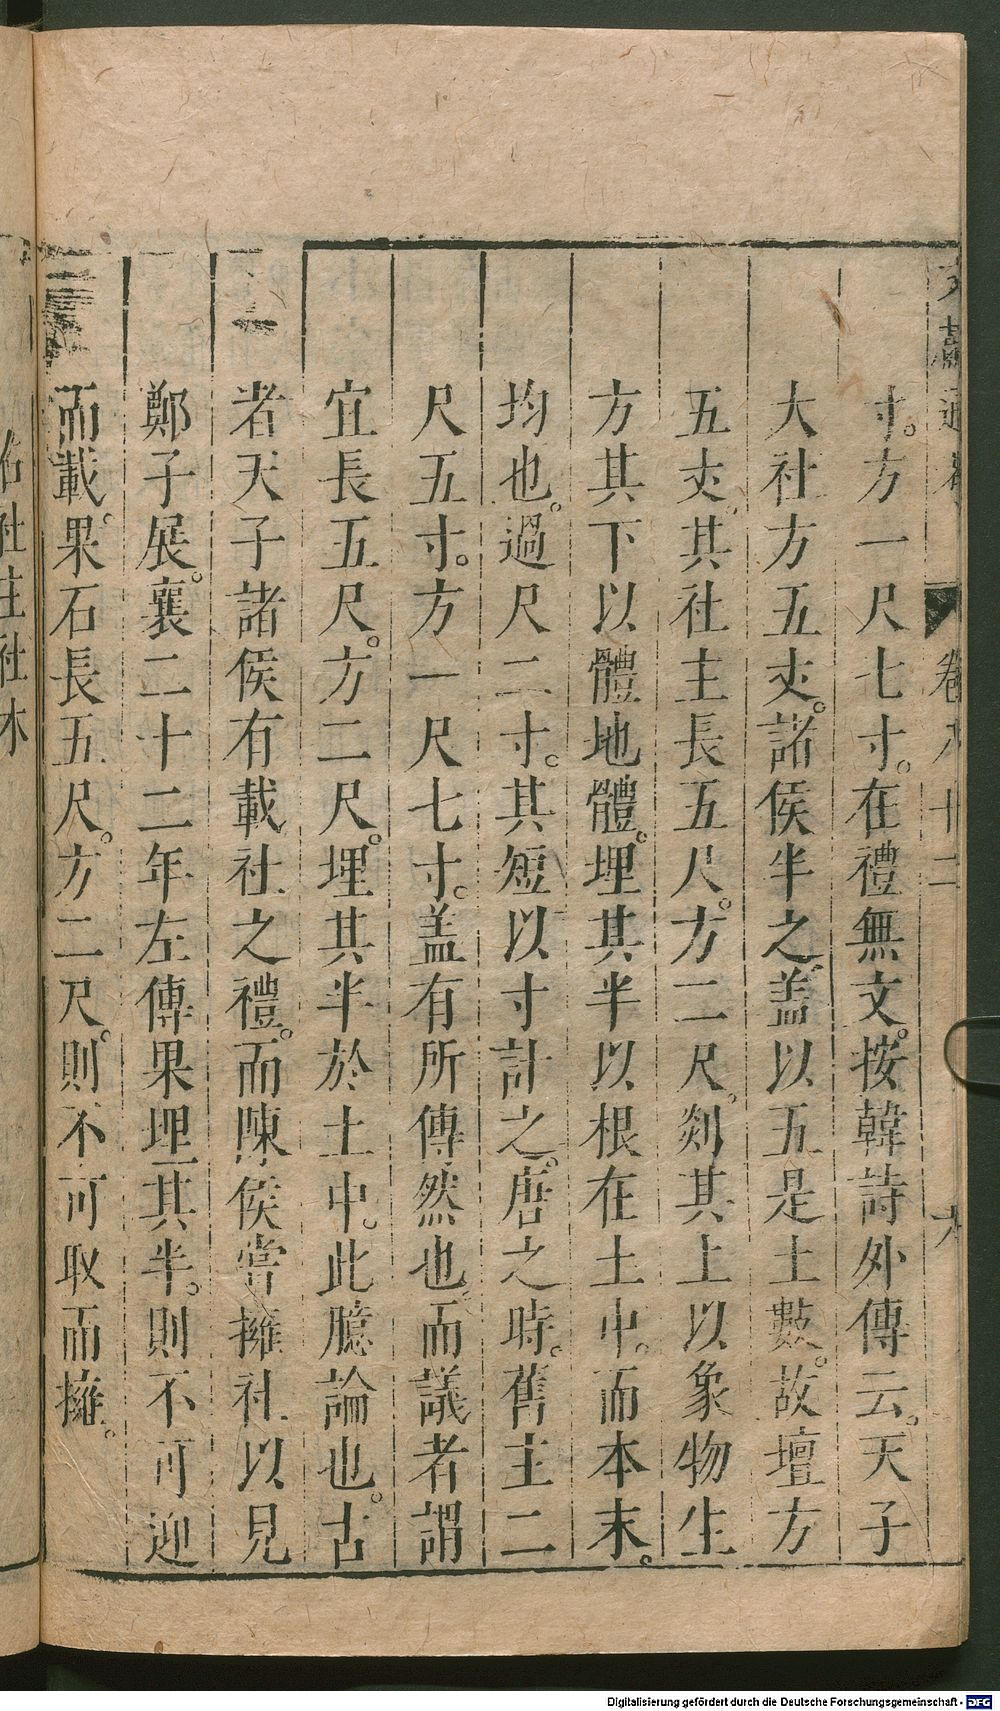 文獻通考 卷八十二 九
寸。方一尺七寸。在禮無文。按韓詩外傳云。天子
大社方五丈。諸侯半之。蓋以五是土數。故壇方
五丈。其社主長五尺。方二尺。剡其上以象物生
方其下以體地體。埋其半以根在土中。而本末。
均也。過尺二寸。其短以寸計之。唐之時。舊主二
尺五寸。方一尺七寸。盖有所傳然也。而議者謂
宜長五尺。方二尺。埋其半於土中。此臆論也。古
者天子諸侯有載社之禮。而陳侯嘗擁社以見
鄭子展。襄二十二年左傳果埋其半。則不可迎
而載。果石長五尺。方二尺。則不可取而擁。
Digitalisierung gefördert durch die Deutsche Forschungsgemeinschaft - DFG